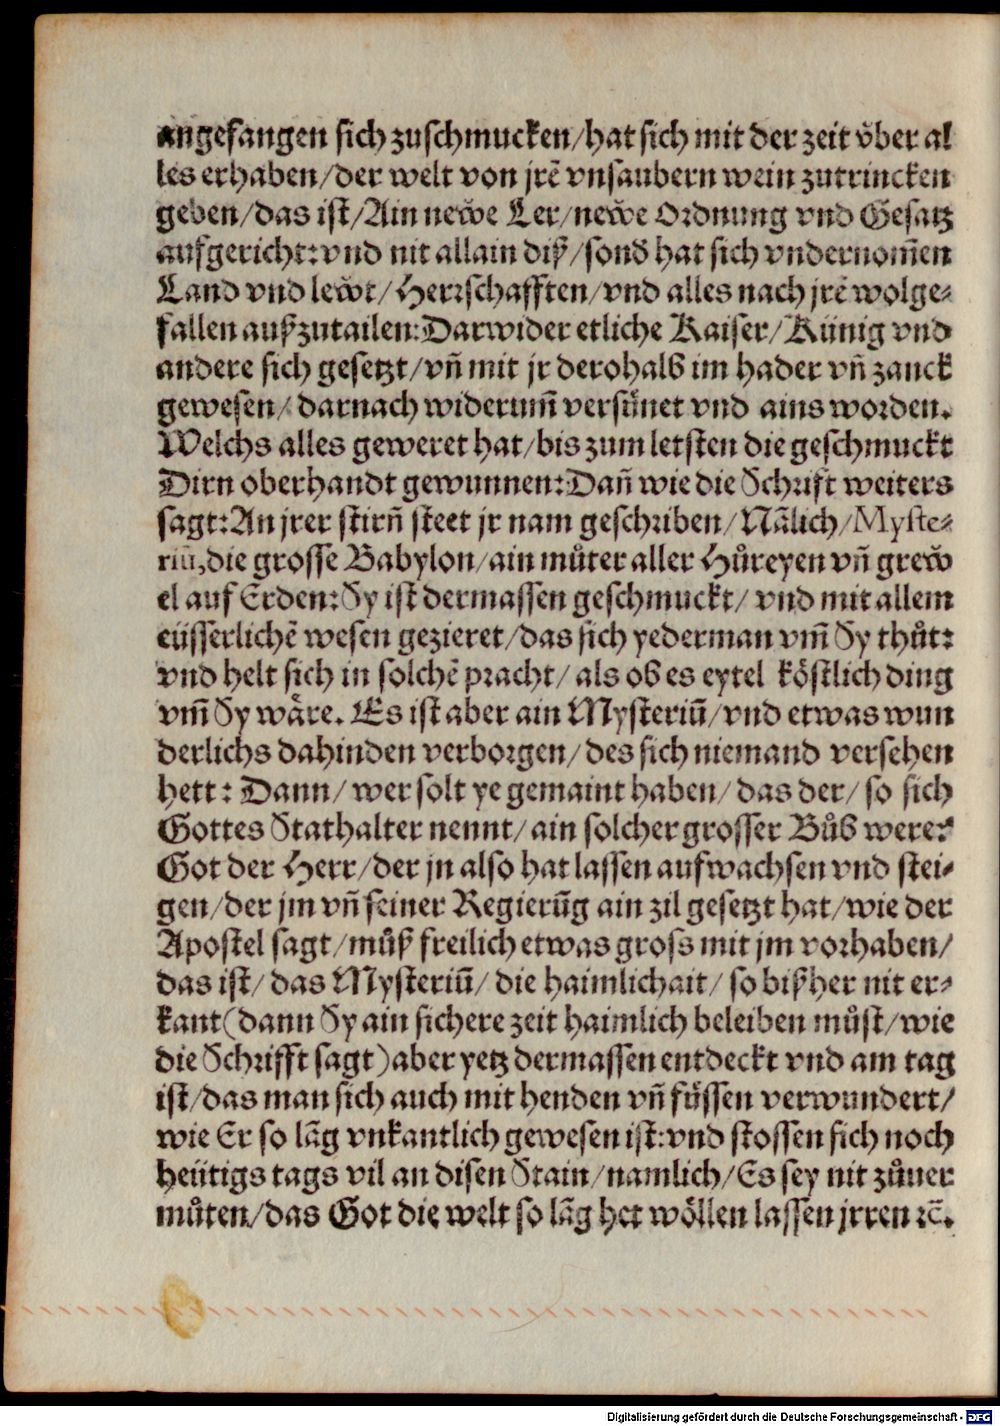 angefangen sich zuschmucken/hat sich mit der zeit vͤber al
les erhaben/der welt von jrē vnsaubern wein zutrincken
geben/das ist/Ain neẅe Ler/neẅe Ordnung vnd Gesatz
aufgericht:vnd nit allain diß/sonđ hat sich vndernom̄en
Land vnd leẅt/Herꝛschafften/vnd alles nach jrē wolge⸗
fallen außzutailen:Darwider etliche Kaiser/Künig vnd
andere sich gesetzt/vn̄ mit jr derohalb im hader vn̄ zanck
gewesen/ darnach widerum̄ versünet vnd ains woꝛden.
Welchs alles geweret hat/bis zum letsten die geschmuckt
Dirn oberhandt gewunnen:Dan̄ wie die Schꝛift weiters
sagt:An jrer stirn̄ steet jr nam geschꝛiben/Nāͤlich/Myste⸗
riū,die grosse Babylon/ain můter aller Hůreyen vn̄ greẅ
el auf Erden:Sy ist dermassen geschmuckt/ vnd mit allem
eüsserlichē wesen gezieret/das sich yederman vm̄ Sy thůt:
vnd helt sich in solchē pꝛacht/ als ob es eytel koͤstlich ding
vm̄ Sy waͤre. Es ist aber ain Mysteriū/vnd etwas wun
derlichs dahinden verboꝛgen/des sich niemand versehen
hett: Dann/ wer solt ye gemaint haben/das der/ so sich
Gottes Stathalter nennt/ain solcher grosser Bůb were:
Got der Herr/der jn also hat lassen aufwachsen vnd stei⸗
gen/der jm vn̄ seiner Regierūg ain zil gesetzt hat/wie der
Apostel sagt/můß freilich etwas gross mit jm voꝛhaben/
das ist/ das Mysteriū/ die haimlichait/ so bißher nit er⸗
kant(dann Sy ain sichere zeit haimlich beleiben můst/wie
die Schꝛifft sagt)aber yetz dermassen entdeckt vnd am tag
ist/das man sich auch mit henden vn̄ füssen verwundert/
wie Er so lāg vnkantlich gewesen ist:vnd stossen sich noch
heütigs tags vil an disen Stain/namlich/Es sey nit zůuer
můten/das Got die welt so lāg het woͤllen lassen jrren ꝛc̄.
Digitalisierung gefördert durch die Deutsche Forschungsgemeinschaft - DFG